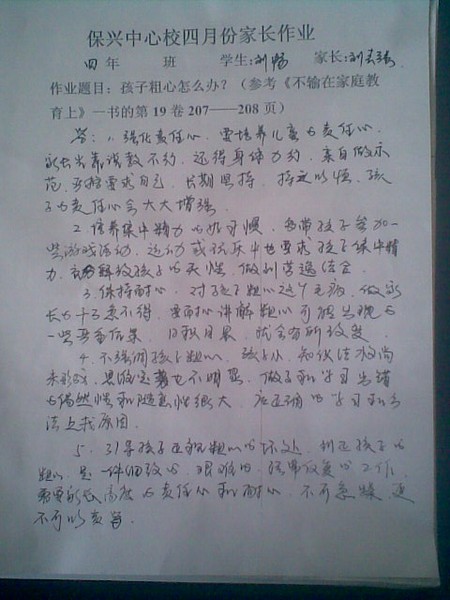 保兴中心校四月份家长作业
四年 班 学生:刘畅 家长:刘
作业题目:孩子粗心怎么办?(参考《不输在家庭教
育上》一书的第19卷207——208页)
答:1.强化责任心,要培养儿童的责任心,
家长光靠说教不行,还得身体力行,亲自做示
范,严格要求自己,长期坚持,持之以恒,孩
子的责任心会大大增强。
2.培养集中精力的好习惯,多带孩子参加一
些游戏活动,运动或娱乐中也要求孩子集中精
力,充分释放孩子的天性,做到劳逸结合。
3.保持耐心,对孩子粗心这个毛病,做家
长的千万急不得,要耐心讲解粗心可能出现的
一些严重后果,日积月累,就会有所改变
4.不强调孩子粗心,孩子小,知识结构尚
未形成,思维定势也不明显,做事和学习出错
的偶然性和随意性很大,应正确的学习和方
法上找原因。
5.引导孩子正视粗心的坏处,纠正孩子的
粗心是一件细致的,艰难的,经常反复的工作,
需要家长高度的责任心和耐心,不可急躁,更
不可以责